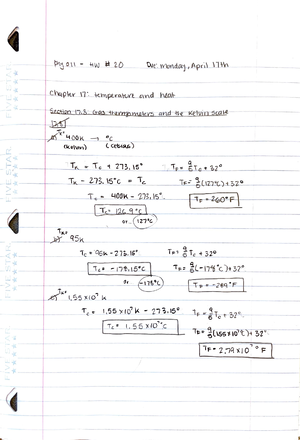 Phy 211 - HW # 20 Due: Monday, April 17th
Chapter 17: temperature and heat
Section 17.3: Gas thermometers and the Kelvin Scale
17.8)
a) Tₖ= 400K → °C
(kelvin) (celsius)
Tₖ = T꜀ + 273.15° T_F = 9/5 T꜀ + 32°
Tₖ - 273.15°C = T꜀ T_F = 9/5 (127°C) + 32°
T꜀ = 400K - 273.15° T_F = 260°F
T꜀ = 126.9°C
or 127°C
b) Tₖ= 95K
T꜀ = 95K - 273.15° T_F = 9/5 T꜀ + 32°
T꜀ = -178.15°C T_F = 9/5 (-178°C) + 32°
or -178°C T_F = -289°F
c) Tₖ= 1.55 x 10⁷ K
T꜀ = 1.55 x 10⁷ K - 273.15° T_F = 9/5 T꜀ + 32°
T꜀ = 1.55 x 10⁷ °C T_F = 9/5 (1.55 x 10⁷ °C) + 32°
T_F = 2.79 x 10⁷ °F
FIVE STAR
FIVE STAR
FIVE STAR